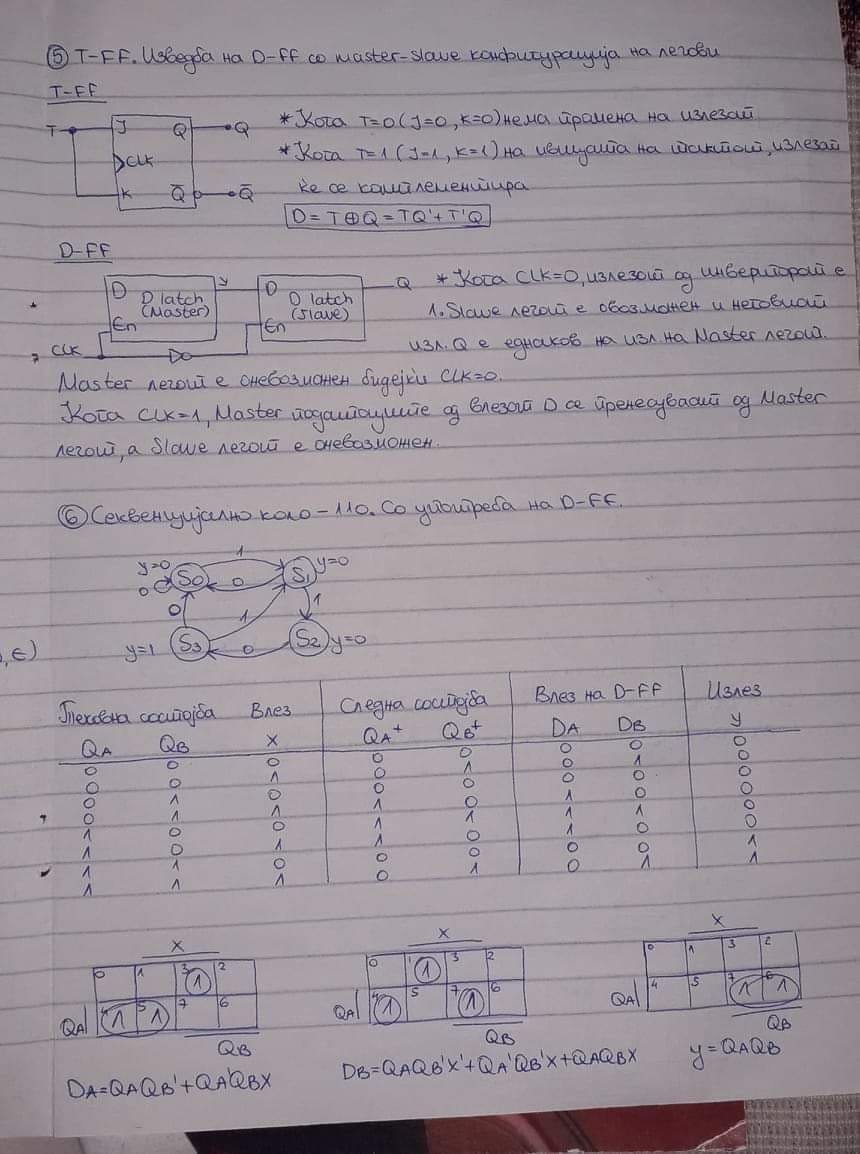 ⑤ T-FF. Изведба на D-FF со master-slave конфигурација на легови
T-FF
T J Q Q
CLK
K Q̅ Q̅
* Кога T=0 (J=0, K=0) нема промена на излезот
* Кога T=1 (J=1, K=1) на ивицата на тактот, излезот
ќе се комплементира
D = T⊕Q = TQ' + T'Q
D-FF
D D latch (Master) En y D D latch (Slave) En Q
CLK
* Кога CLK=0, излезот од инверторот е
1. Slave легот е овозможен и неговиот
изл. Q е еднаков на изл на Master легот.
Master легот е оневозможен бидејќи CLK=0.
Кога CLK=1, Master податоците од влезот D се пренесуваат од Master
легот, а Slave легот е оневозможен.
⑥ Секвенцијално коло - 110. Со употреба на D-FF.
y=0 S0 1 S1 y=0
0 0
0 1 1
y=1 S3 0 S2 y=0
,Е)
Тековна состојба Влез Следна состојба Влез на D-FF Излез
QA QB X QA+ QB+ DA DB y
0 0 0 0 0 0 0 0
0 0 1 0 1 0 1 0
0 1 0 0 0 0 0 0
0 1 1 1 0 1 0 0
1 0 0 1 1 1 1 0
1 0 1 1 0 1 0 0
1 1 0 0 0 0 0 1
1 1 1 0 1 0 1 1
X X X
0 1 3 1 2 0 1 1 3 2 0 1 3 2
QA 4 1 5 1 7 6 QA 4 1 5 7 1 6 QA 4 5 7 1 6 1
QB QB QB
DA=QAQB'+QA'QBX DB=QAQB'X'+QA'QB'X+QAQBX y=QAQB